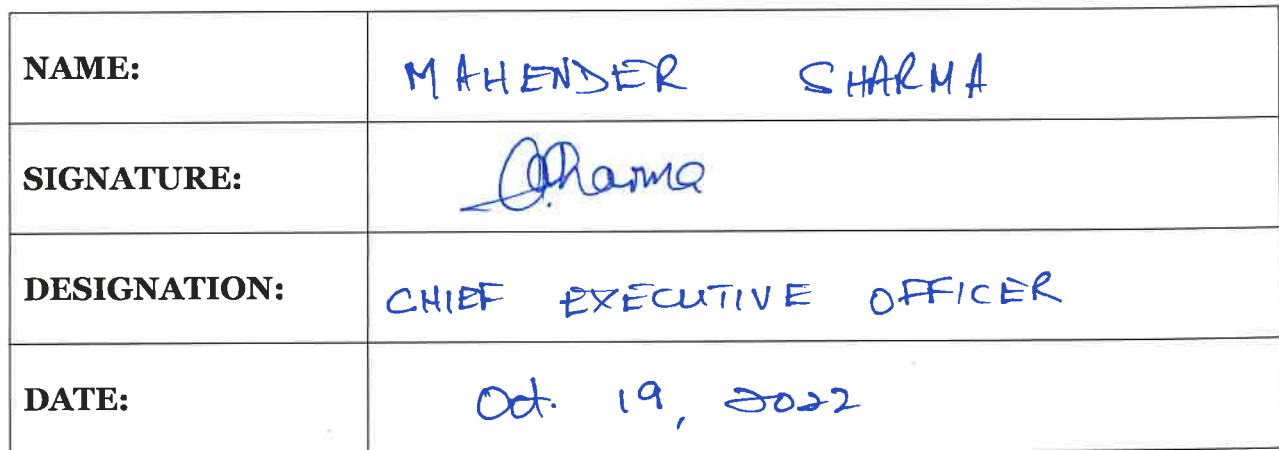 NAME: MAHENDER SHARMA
SIGNATURE: Sharma
DESIGNATION: CHIEF EXECUTIVE OFFICER
DATE: Oct. 19, 2022